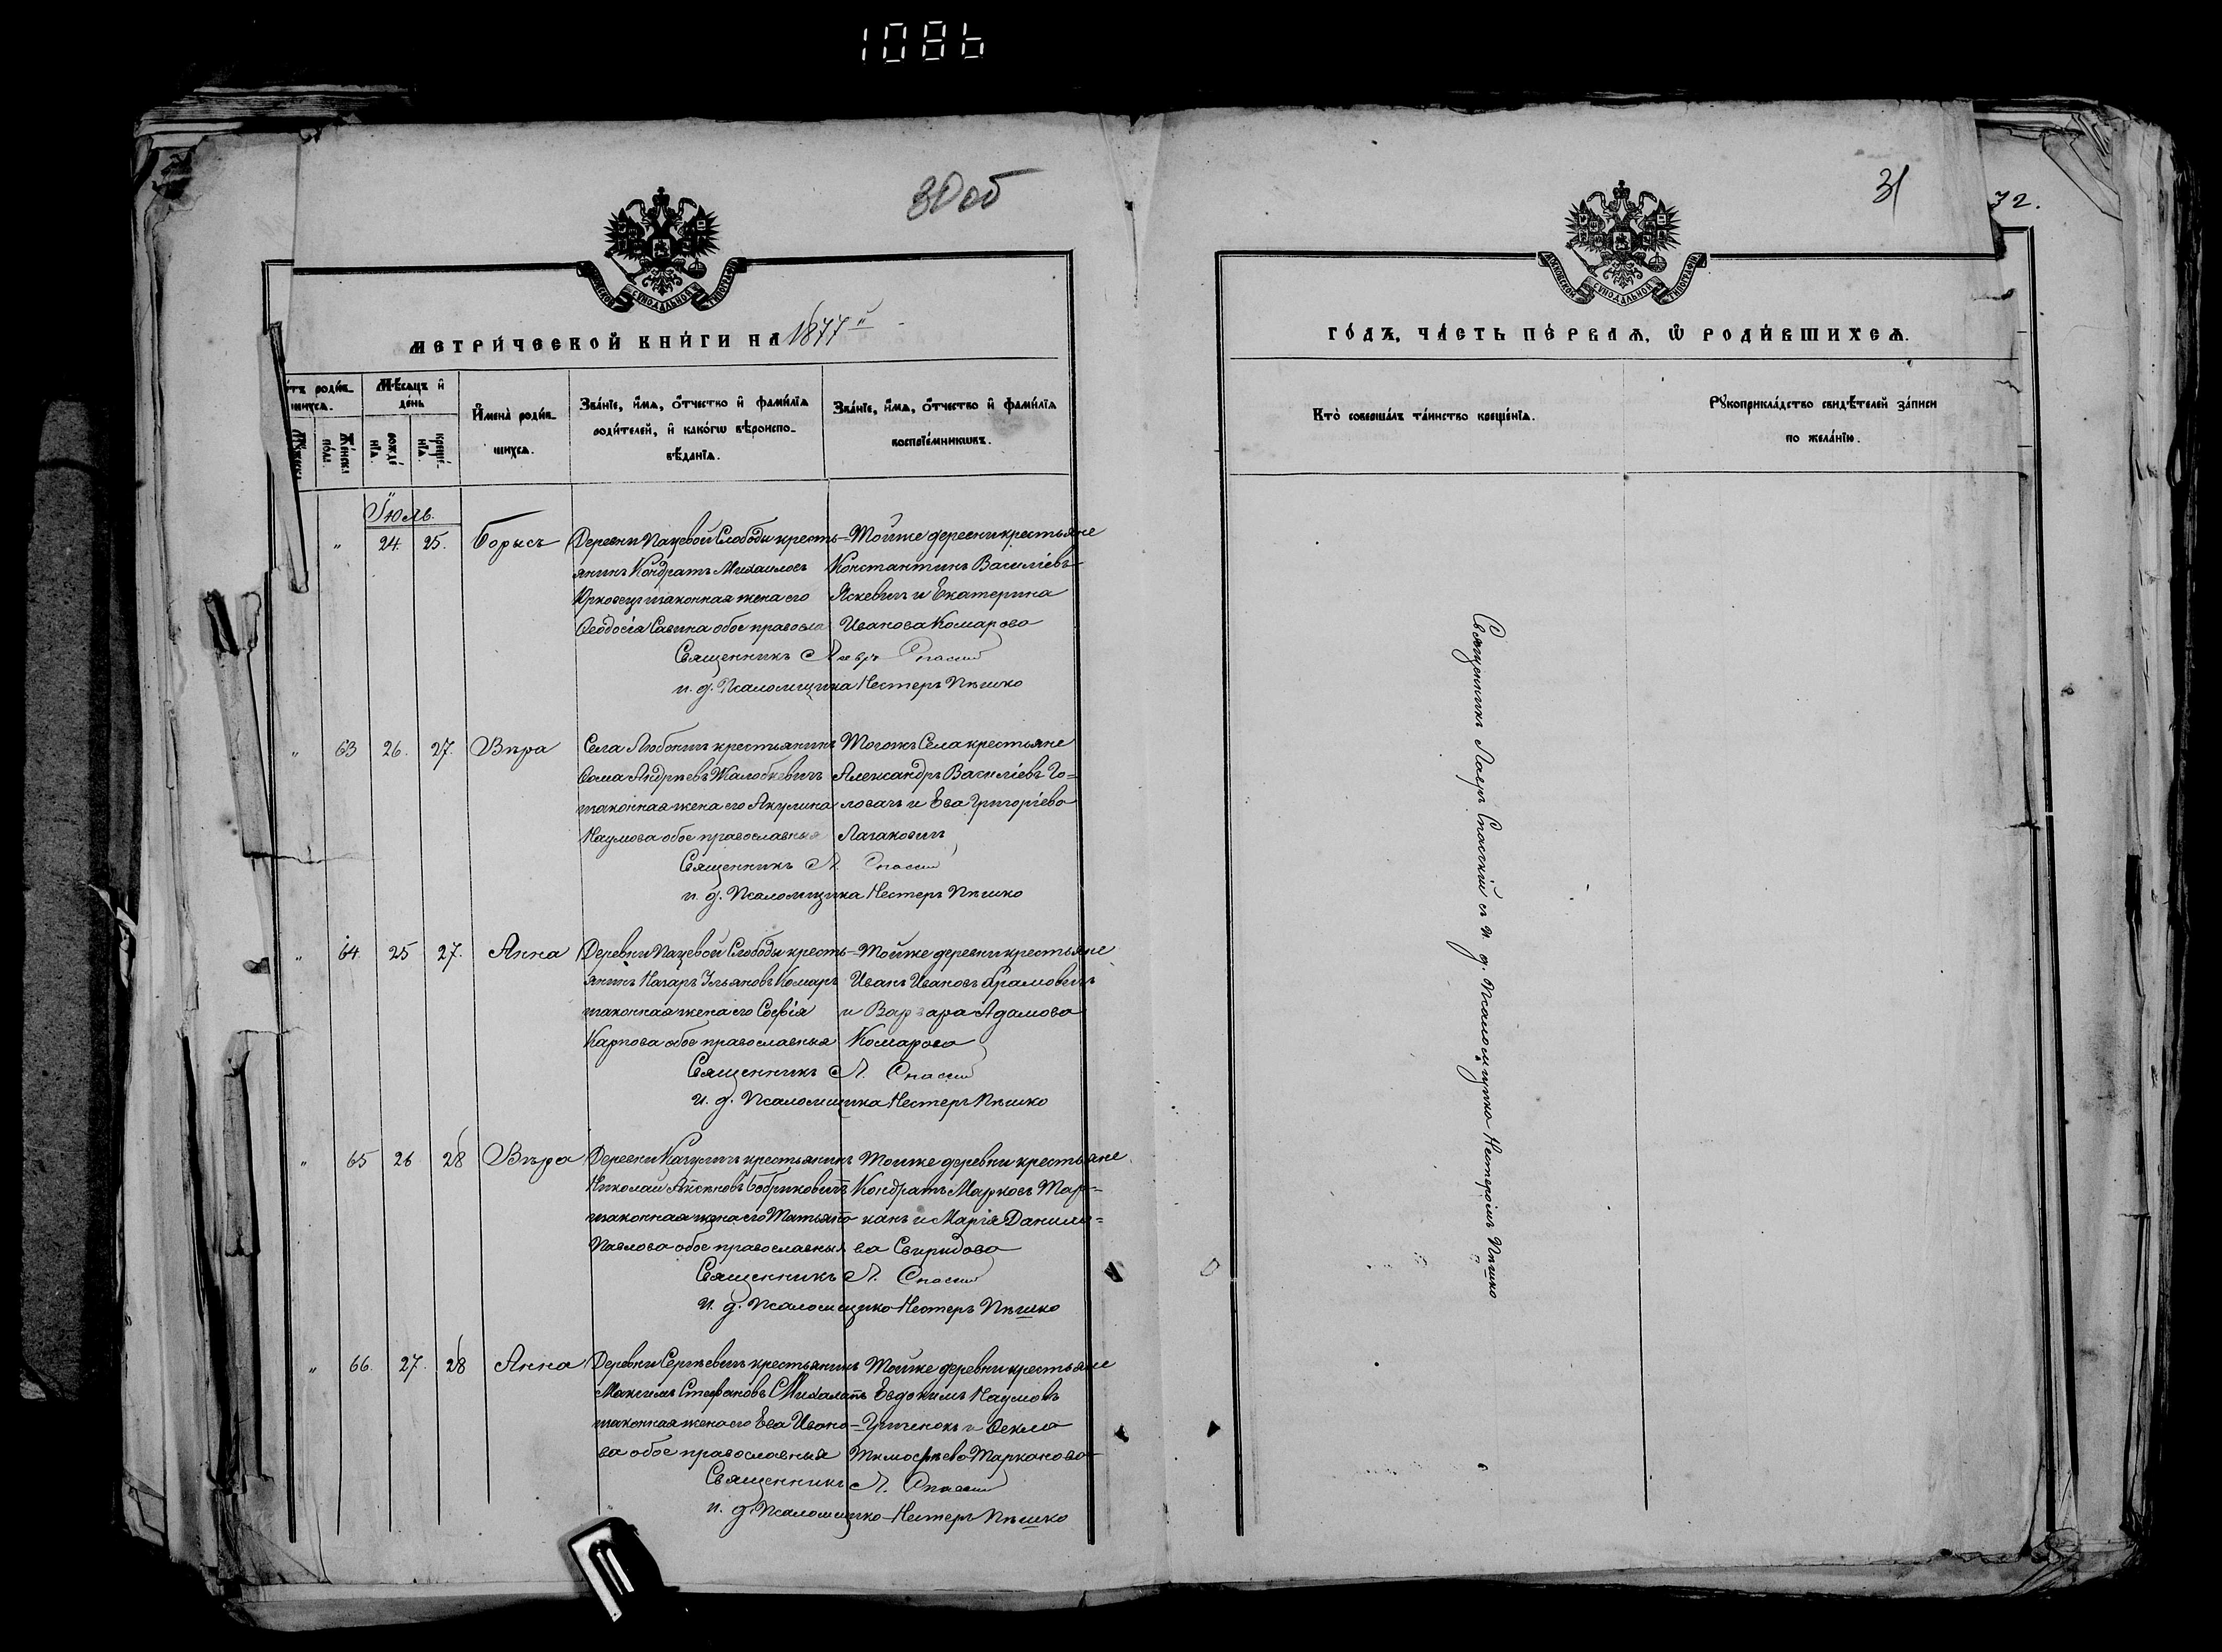 1086
30об
31
32.
МОСКОВСКОЙ СѴНОДАЛЬНОЙ ТИПОГРАФІИ
МЕТРИ́ЧЕСКОЙ КНИ́ГИ НА 1877й
Мѣсяцъ и҆ де́нь
И҆мена̀ роди́вшихсѧ.
Зва́нїе, и҆́мѧ, ѻ҆́тчество и҆ фами́лїѧ роди́телей, и҆ како́гѡ вѣроисповѣ́данїѧ.
Зва́нїе, и҆́мѧ, ѻ҆́тчество и҆ фами́лїѧ воспрїе́мникѡвъ.
Же́нска по́ла.
рожде́нїѧ.
креще́нїѧ.
Іюль.
" 24. 25. Борысъ
Деревни Пацевой Слободы кресть-
янинъ Кондратъ Михаиловъ
законная жена его
Ѳеодосія Савина обое правосла
Тойже деревни крестьяне
Константинъ Василіевъ
Яскевичъ и Екатерина
Иванова Комарова
Священникъ Лавръ Спасскій
и. д. Псаломщика Нестеръ Пѣшко
" 63 26. 27. Вѣра
Села Любоничъ крестьянинъ
Ѳома Андреевъ Жалобкевичъ
законная жена его Акулина
Наумова обое православныя
Тогожъ Села крестьяне
Александръ Василіевъ Го=
ловачъ и Ева Григоріева
Лагаковичъ
Священникъ Л. Спасскій
и. д. Псаломщика Нестеръ Пѣшко
" 64. 25 27. Анна
Деревни Пацевой Слободы кресть-
янинъ Назаръ Ильяновъ Комаръ
законная жена его Софія
Карпова обое православныя
Тойже деревни крестьяне
Иванъ Ивановъ Храмовичъ
и Варвара Адамова
Комарова
Священникъ Л. Спасскій
и. д. Псаломщика Нестеръ Пѣшко
" 65 26 28 Вѣра
Деревни Качуличъ крестьянинъ
Николай Бобриковичъ
законная жена его Татьяна
Павлова обое православныя
Тойже деревни крестьяне
Кондратъ Марковъ Тар-
канъ и Марія Данило=
ва Свиридова
Священникъ Л. Спасскій
и. д. Псаломщика Нестеръ Пѣшко
" 66. 27. 28 Анна
Деревни Сергѣевичъ крестьянинъ
Максимъ Стефановъ
законная жена его Ева Ивано-
ва обое православныя
Тойже деревни крестьяне
Евдокимъ Наумовъ
Гриченокъ и Ѳекла
Тимофѣева Тарканова
Священникъ Л. Спасскій
и. д. Псаломщика Нестеръ Пѣшко
МОСКОВСКОЙ СѴНОДАЛЬНОЙ ТИПОГРАФІИ
ГО́ДЪ, ЧА́СТЬ ПЕ́РВАѦ, Ѡ҆ РОДИ́ВШИХСѦ.
Кто̀ соверша́лъ та́инство креще́нїѧ.
Рꙋкоприкла́дство свидѣ́телей за́писи по жела́нїю.
Священникъ Лавръ Спасскій съ и. д. Псаломщика Нестеромъ Пѣшко